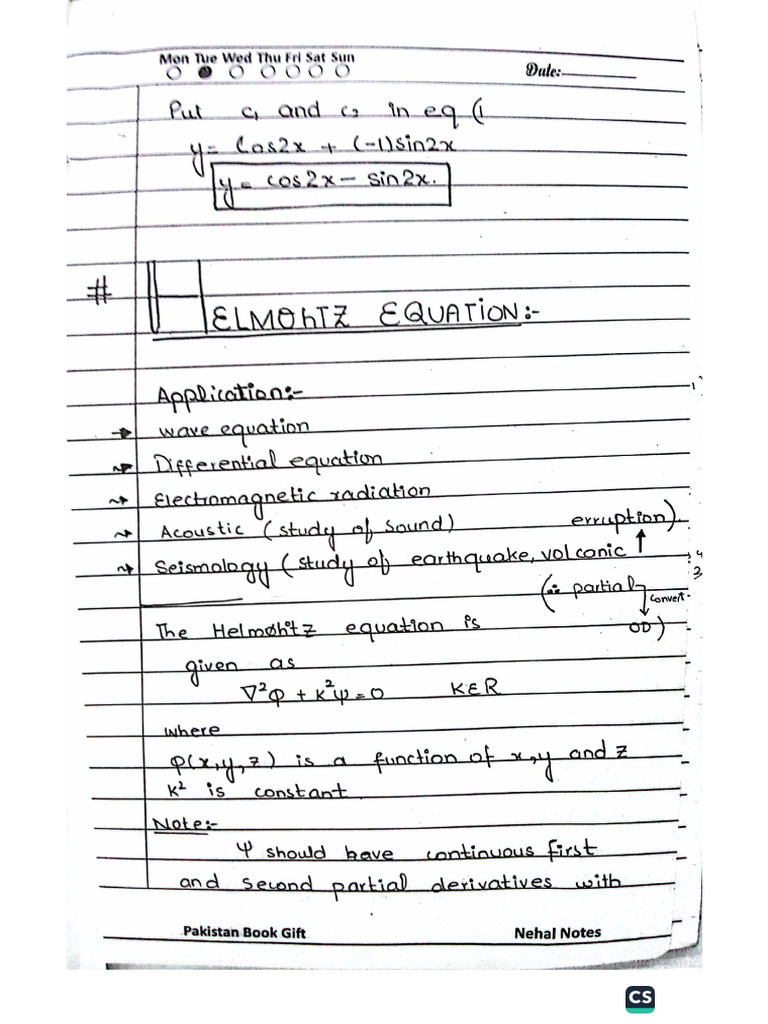 Mon Tue Wed Thu Fri Sat Sun
Date:
Put c₁ and c₂ in eq (1
y = Cos2x + (-1)sin2x
y = cos2x - sin2x.
# HELMOhTZ EQUATION:-
Application:-
→ wave equation
→ Differential equation
→ Electromagnetic radiation
→ Acoustic (study of sound)
→ Seismology (study of earthquake, volcanic ↑ erruption).
(∵ partial
↓ convert
OD)
The Helmohtz equation is
given as
∇²φ + k²ψ = 0 K∈R
where
φ(x,y,z) is a function of x,y and z
K² is constant
Note:-
ψ should have continuous first
and second partial derivatives with
Pakistan Book Gift
Nehal Notes
CS